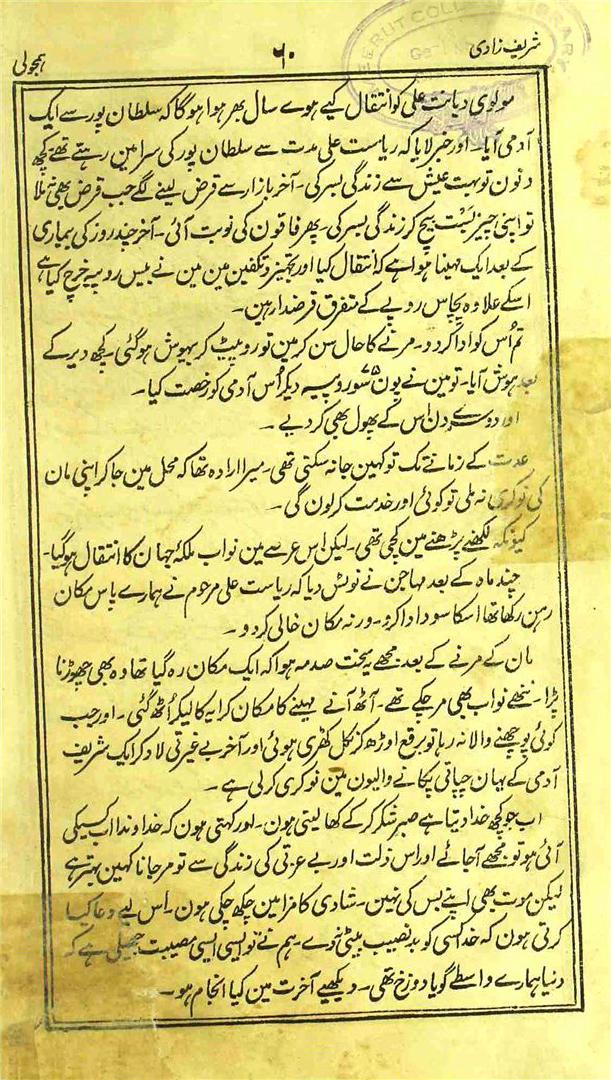 شریف زادی
۶۰
ہمجولی
مولوی دیانت علی کو انتقال کیے ہوے سال بھر ہوا ہوگا کہ سلطان پور سے ایک
آدمی آیا۔ اور خبر لایا کہ ریاست علی مدت سے سلطان پور کی سرا مین رہتے تھے کچھ
دنون تو بہت عیش سے زندگی بسر کی۔ آخر بازار سے قرض لینے لگے جب قرض بھی نہ ملا
تو اپنی چیز بست بیچ کر زندگی بسر کی۔ پھر فاقون کی نوبت آئی۔ آخر چند روز کی بیماری
کے بعد ایک مہینا ہوا ہے کہ انتقال کیا اور تجہیز و تکفین مین مین نے بیس روپیہ خرچ کیا ہے
اسکے علاوہ پچاس روپے کے متفرق قرضدار ہین۔
تم اُس کو ادا کردو۔ مرنے کا حال سن کر مین تو روپیٹ کر بیہوش ہوگئی۔ کچھ دیر کے
بعد ہوش آیا۔ تو مین نے پون سو روپیہ دیکر اُس آدمی کو رخصت کیا۔
اور دوسرے دن اس کے پھول بھی کردیے۔
عدت کے زمانے تک تو کہین جا نہ سکتی تھی۔ میرا ارادہ تھا کہ محل مین جا کر اپنی مان
کی نوکری نہ ملی تو کوئی اور خدمت کرلون گی۔
کیونکہ لکھنے پڑھنے مین کچی تھی۔ لیکن اس عرصے مین نواب ملکۂ جہان کا انتقال ہوگیا۔
چند ماہ کے بعد مہاجن نے نوٹس دیا کہ ریاست علی مرحوم نے ہمارے پاس مکان
رہن رکھا تھا اسکا سود ادا کرو۔ ورنہ مکان خالی کردو۔
مان کے مرنے کے بعد مجھے یہ سخت صدمہ ہوا کہ ایک مکان رہ گیا تھا وہ بھی چھوڑنا
پڑا۔ ننھے نواب بھی مرچکے تھے۔ آٹھ آنے مہینے کا مکان کرایہ کا لیکر اُٹھ گئی۔ اور جب
کوئی پوچھنے والا نہ رہا تو برقع اوڑھ کر نکل کھڑی ہوئی اور آخر بے غیرتی لاد کر ایک شریف
آدمی کے یہان چپاتی پکانے والیون مین نوکری کرلی ہے۔
اب جو کچھ خدا دیتا ہے صبر شکر کرکے کھا لیتی ہون۔ اور کہتی ہون کہ خداوندا اب کسیکی
آئی ہو تو مجھے آجائے اور اس ذلت اور بے عزتی کی زندگی سے تو مر جانا کہین بہتر ہے
لیکن موت بھی اپنے بس کی نہین۔ شادی کا مزا مین چکھ چکی ہون۔ اس لیے دعا کیا
کرتی ہون کہ خدا کسی کو بدنصیب بیٹی نہ دے۔ ہم نے تو ایسی ایسی مصیبت جھیلی ہے کہ
دنیا ہمارے واسطے گویا دوزخ تھی۔ دیکھیے آخرت مین کیا انجام ہو۔